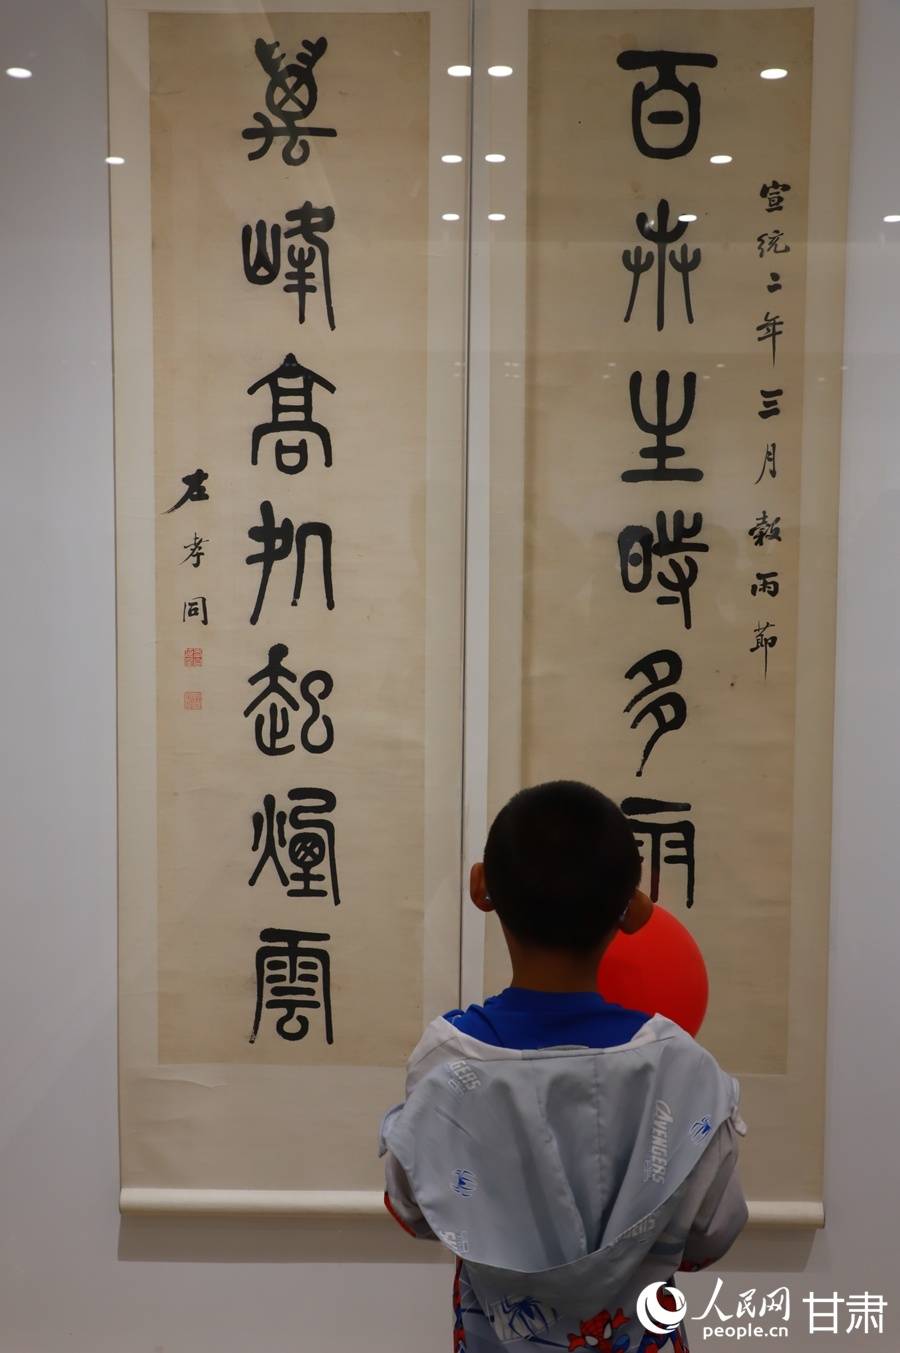 宣統二年三月穀雨節
百卉生時多雨
萬峰高処起煙雲
左孝同
AVENGERS
人民网 甘肃
people.cn